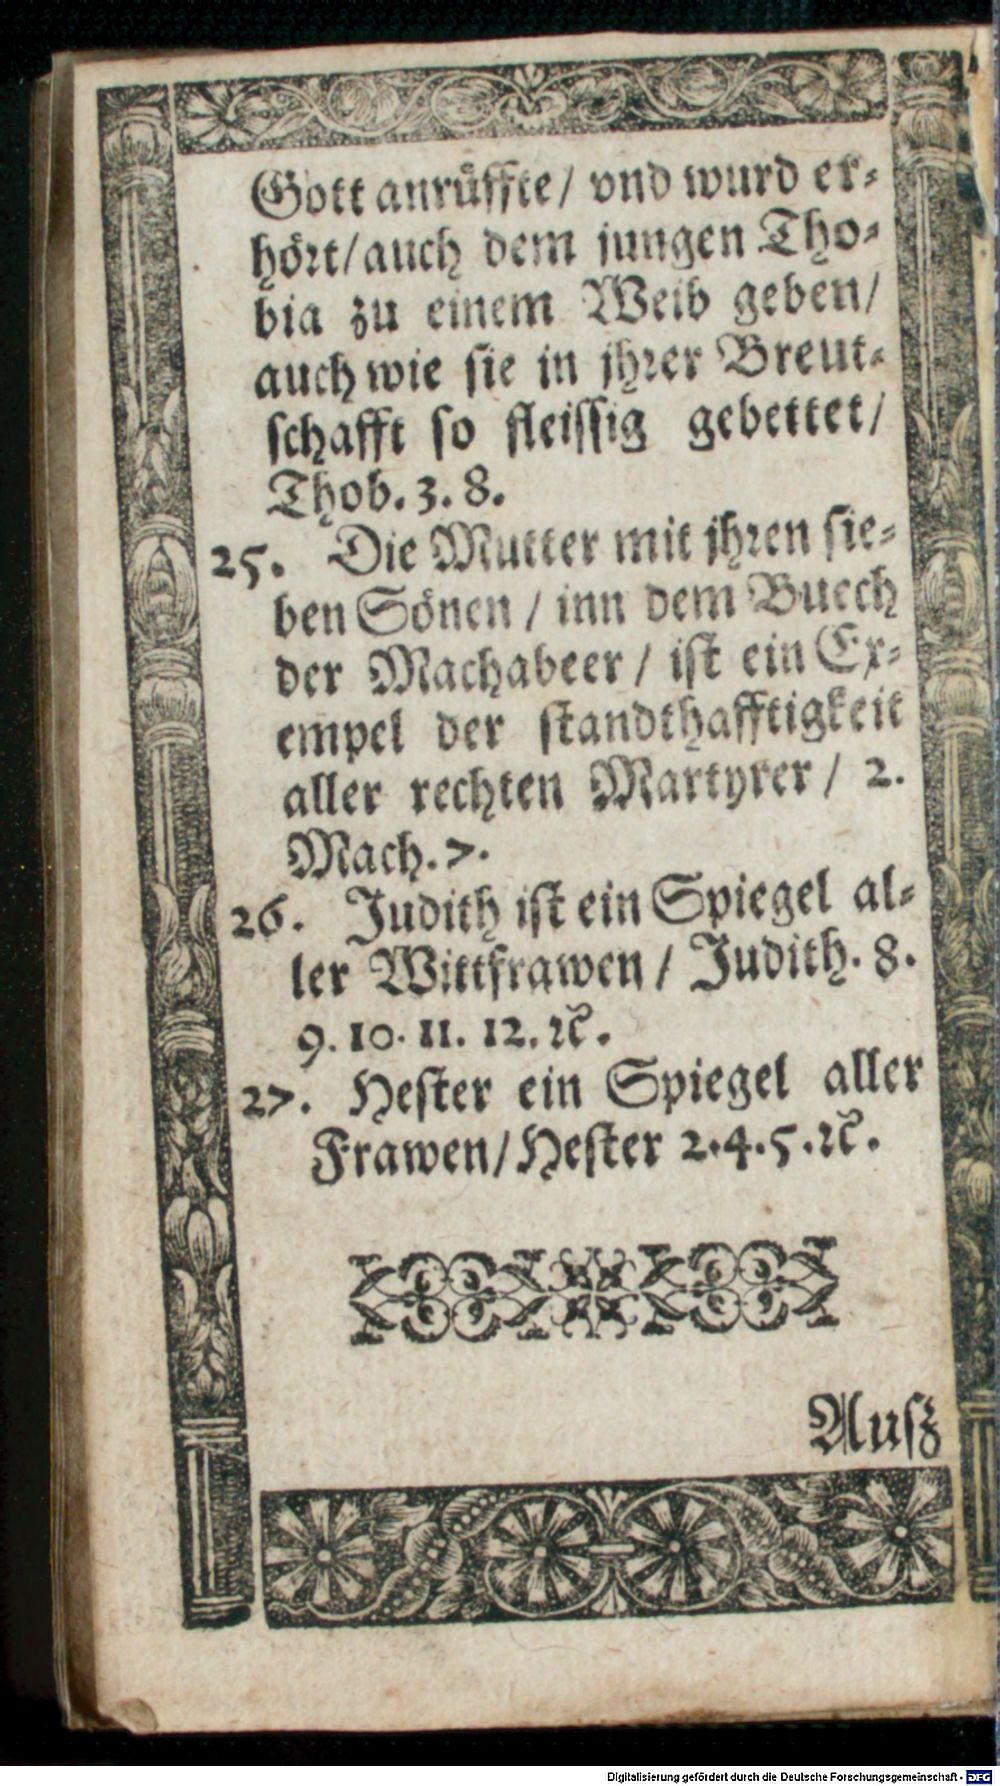 Gott anrüffte / vnd wurd er⸗
hört / auch dem jungen Tho⸗
bia zu einem Weib geben /
auch wie sie in jhrer Breut⸗
schafft so fleissig gebettet /
Thob. 3. 8.
25. Die Mutter mit jhren sie⸗
ben Sönen / inn dem Buech
der Machabeer / ist ein Ex⸗
empel der standthafftigkeit
aller rechten Martyrer / 2.
Mach. 7.
26. Judith ist ein Spiegel al⸗
ler Wittfrawen / Judith. 8.
9. 10. 11. 12. ꝛc.
27. Hester ein Spiegel aller
Frawen / Hester 2. 4. 5. ꝛc.
Ausz
Digitalisierung gefördert durch die Deutsche Forschungsgemeinschaft - DFG